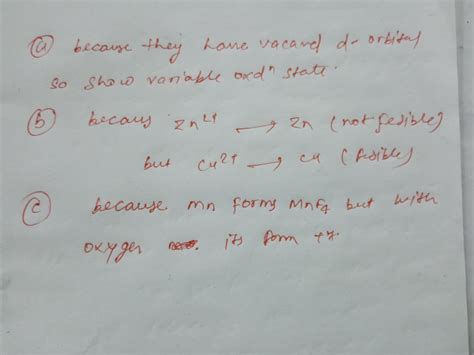 (a) because they have vacand d-orbital
so show variable oxdⁿ state.
(b) becaus Zn²⁺ → Zn (not fesible)
but Cu²⁺ → Cu (fesible)
(c) because Mn forms MnF₄ but with
oxygen its form +7.